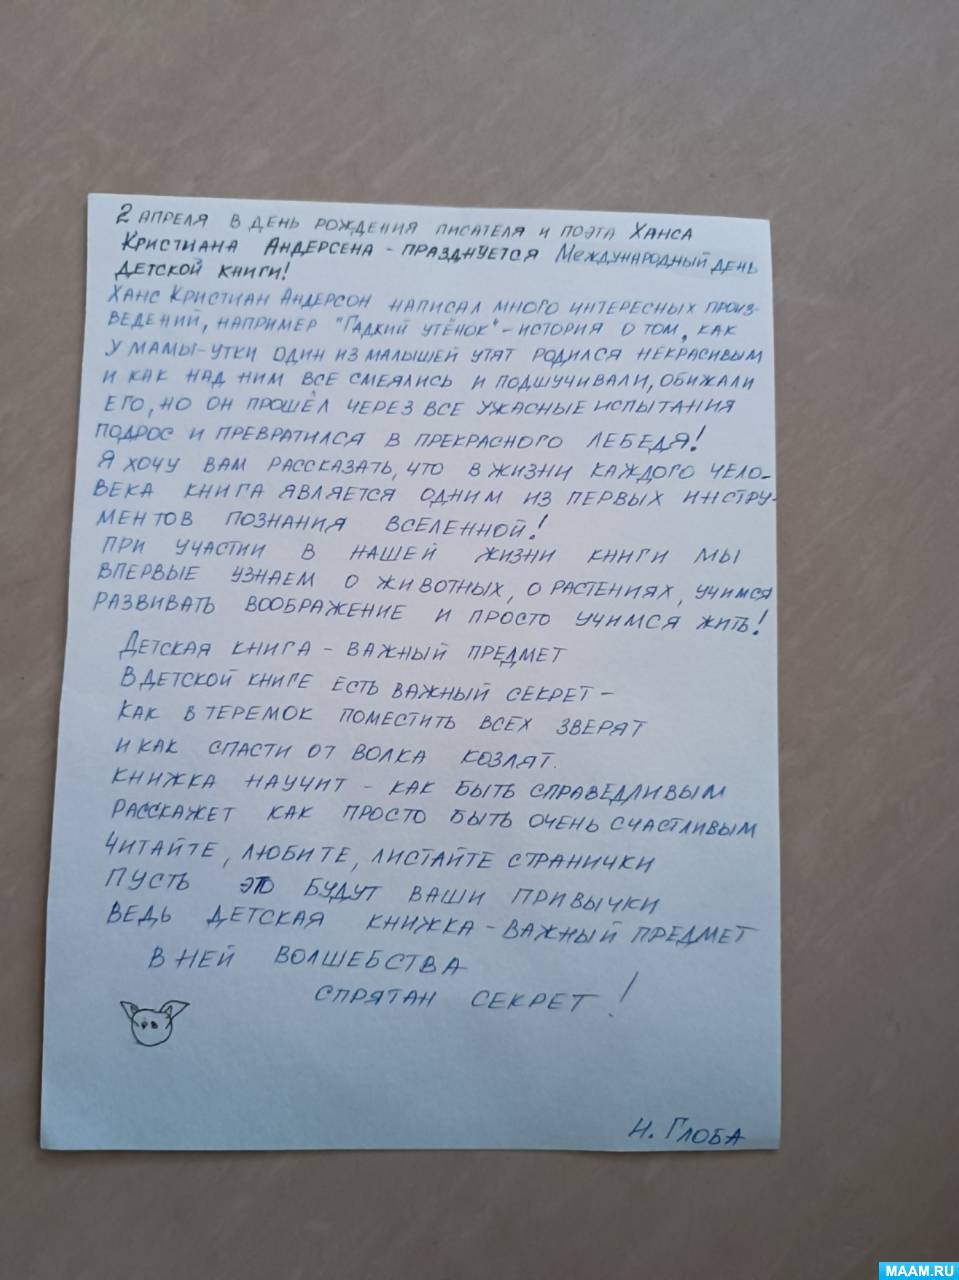 2 АПРЕЛЯ В ДЕНЬ РОЖДЕНИЯ ПИСАТЕЛЯ И ПОЭТА ХАНСА
КРИСТИАНА АНДЕРСЕНА - ПРАЗДНУЕТСЯ МЕЖДУНАРОДНЫЙ ДЕНЬ
ДЕТСКОЙ КНИГИ!
ХАНС КРИСТИАН АНДЕРСОН НАПИСАЛ МНОГО ИНТЕРЕСНЫХ ПРОИЗ-
ВЕДЕНИЙ, НАПРИМЕР "ГАДКИЙ УТЁНОК" - ИСТОРИЯ О ТОМ, КАК
У МАМЫ-УТКИ ОДИН ИЗ МАЛЫШЕЙ УТЯТ РОДИЛСЯ НЕКРАСИВЫМ
И КАК НАД НИМ ВСЕ СМЕЯЛИСЬ И ПОДШУЧИВАЛИ, ОБИЖАЛИ
ЕГО, НО ОН ПРОШЁЛ ЧЕРЕЗ ВСЕ УЖАСНЫЕ ИСПЫТАНИЯ
ПОДРОС И ПРЕВРАТИЛСЯ В ПРЕКРАСНОГО ЛЕБЕДЯ!
Я ХОЧУ ВАМ РАССКАЗАТЬ, ЧТО В ЖИЗНИ КАЖДОГО ЧЕЛО-
ВЕКА КНИГА ЯВЛЯЕТСЯ ОДНИМ ИЗ ПЕРВЫХ ИНСТРУ-
МЕНТОВ ПОЗНАНИЯ ВСЕЛЕННОЙ!
ПРИ УЧАСТИИ В НАШЕЙ ЖИЗНИ КНИГИ МЫ
ВПЕРВЫЕ УЗНАЕМ О ЖИВОТНЫХ, О РАСТЕНИЯХ, УЧИМСЯ
РАЗВИВАТЬ ВООБРАЖЕНИЕ И ПРОСТО УЧИМСЯ ЖИТЬ!
ДЕТСКАЯ КНИГА - ВАЖНЫЙ ПРЕДМЕТ
В ДЕТСКОЙ КНИГЕ ЕСТЬ ВАЖНЫЙ СЕКРЕТ -
КАК В ТЕРЕМОК ПОМЕСТИТЬ ВСЕХ ЗВЕРЯТ
И КАК СПАСТИ ОТ ВОЛКА КОЗЛЯТ.
КНИЖКА НАУЧИТ - КАК БЫТЬ СПРАВЕДЛИВЫМ
РАССКАЖЕТ КАК ПРОСТО БЫТЬ ОЧЕНЬ СЧАСТЛИВЫМ
ЧИТАЙТЕ, ЛЮБИТЕ, ЛИСТАЙТЕ СТРАНИЧКИ
ПУСТЬ ЭТО БУДУТ ВАШИ ПРИВЫЧКИ
ВЕДЬ ДЕТСКАЯ КНИЖКА - ВАЖНЫЙ ПРЕДМЕТ
В НЕЙ ВОЛШЕБСТВА
СПРЯТАН СЕКРЕТ!
Н. ГЛОБА
MAAM.RU